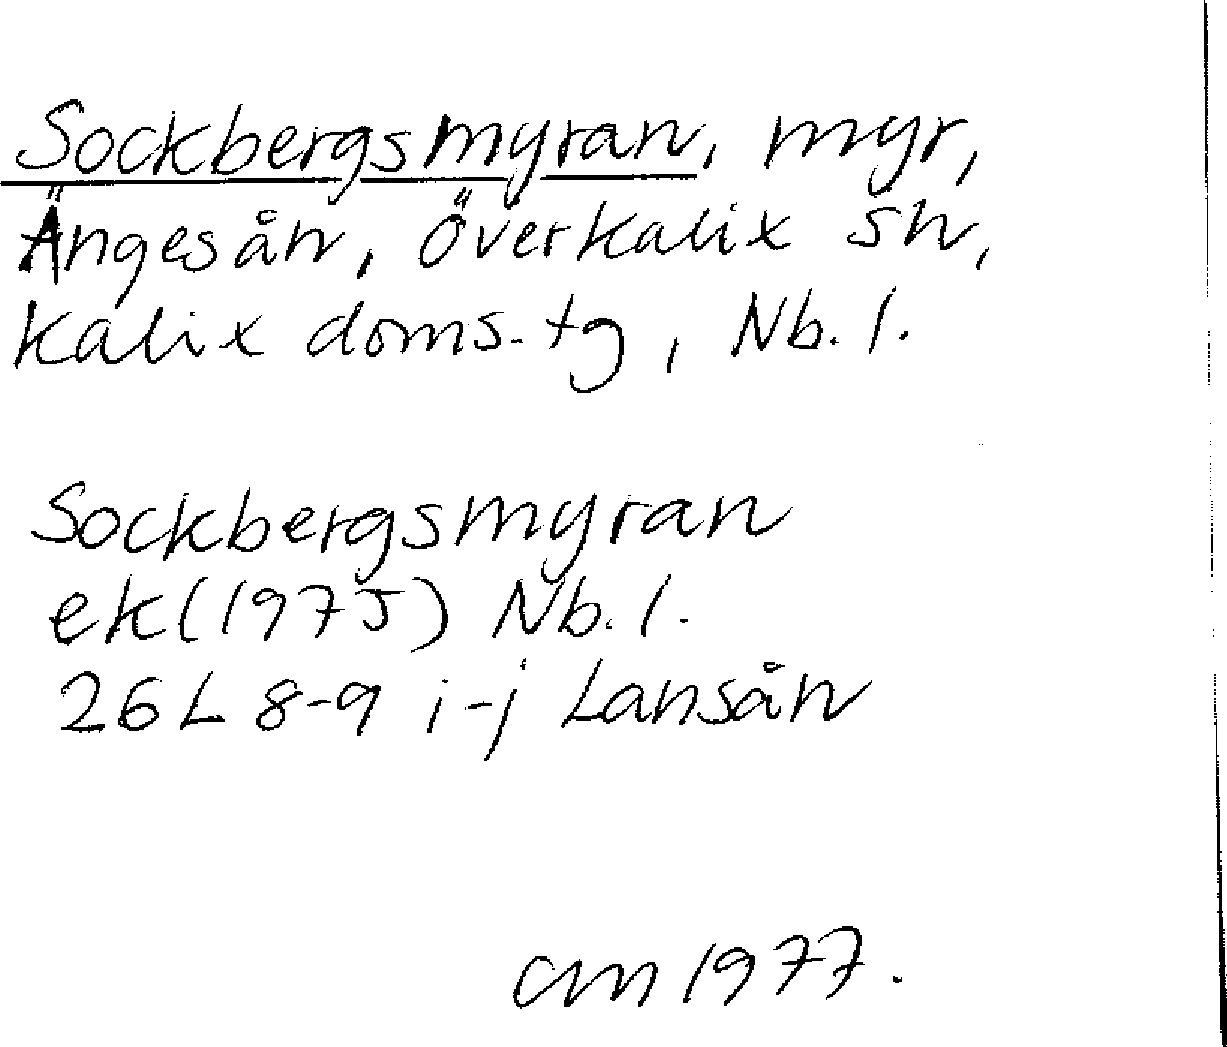 Sockbergsmyran, myr,
Ängesån, Överkalix sn,
Kalix doms. tg, Nb. l.
Sockbergsmyran
ek (1975) Nb. l.
26 L 8-9 i-j Lansån
CM 1977.